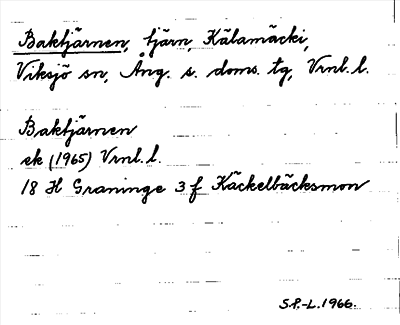 Baktjärnen, tjärn, Kälamäcki,
Viksjö sn, Ång. s. doms. tg, Vrnl. l.
Baktjärnen
ek (1965) Vrnl. l.
18 H Graninge 3 f Käckelbäcksmon
S.P.-L. 1966.